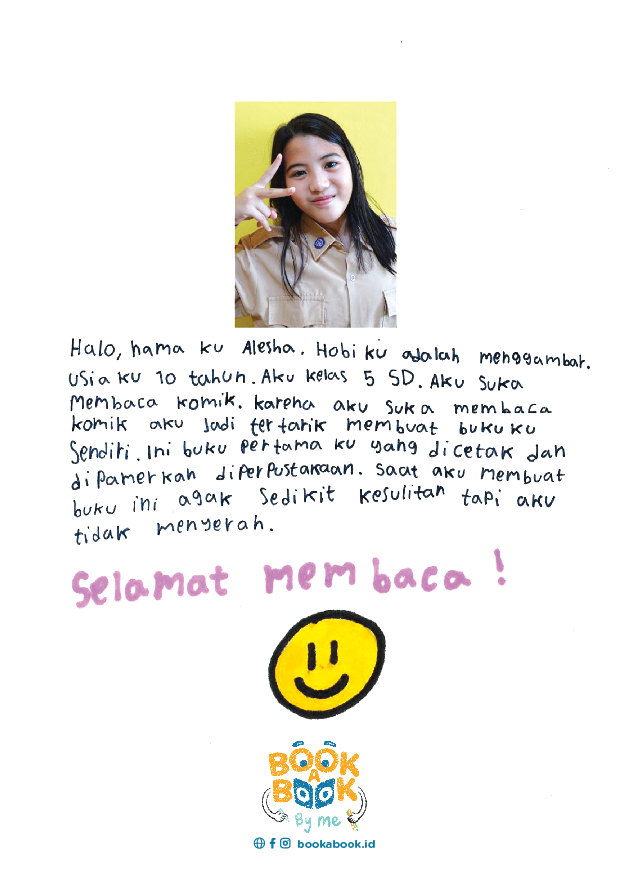 Halo, nama ku Alesha. Hobi ku adalah menggambar.
Usia ku 10 tahun. Aku kelas 5 SD. Aku suka
membaca komik. karena aku suka membaca
komik aku jadi tertarik membuat buku ku
Sendiri. Ini buku pertama ku yang dicetak dan
dipamerkan diperpustakaan. Saat aku membuat
buku ini agak sedikit kesulitan tapi aku
tidak menyerah.
Selamat membaca!
BOOK
A
BOOK
By me
bookabook.id